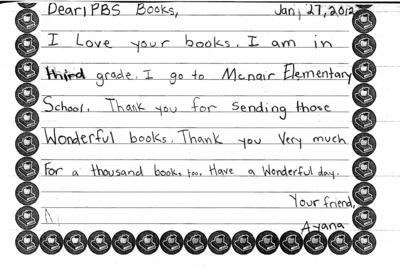 Dear, PBS Books, Jan, 27, 2012
I Love your books. I am in
third grade. I go to Mcnair Elementary
School. Thank you for sending those
Wonderful books. Thank you Very much
For a thousand books too. Have a Wonderful day.
Your friend,
Ayana